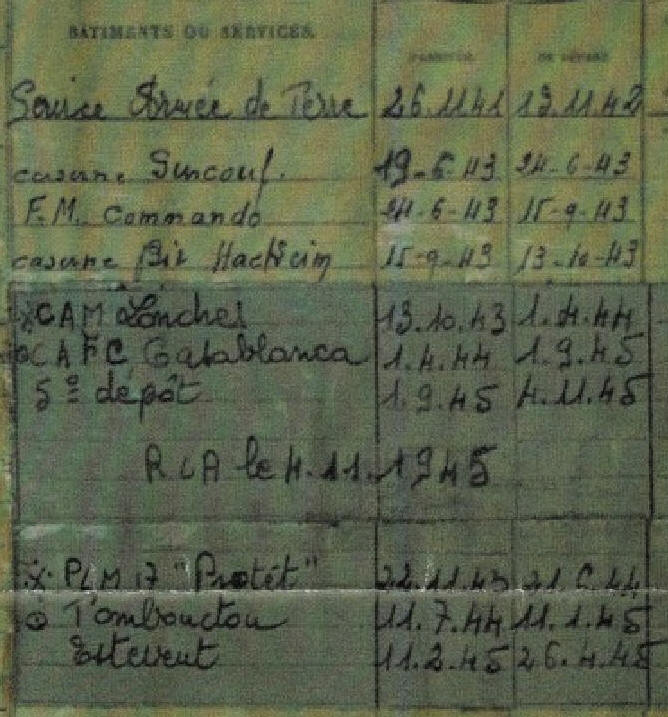 BÂTIMENTS OU SERVICES.
DE DÉPART
Service Armée de Terre 26.11 41 13.11.42
caserne Surcouf. 19-5-43 24-6-43
F.M. Commando 24-6-43 15-9-43
caserne Bir Hacheim 15-9-43 13-10-43
CAM Londres 13.10.43 1.4.44
CAFC Casablanca 1.4.44 1.9.45
5e dépôt 1.9.45 4.11.45
RLA le 4.11.1945
PLM 17 "Protêt" 22.11.43
Tombouctou 11.7.44 11.1.45
11.2.45 26.4.45